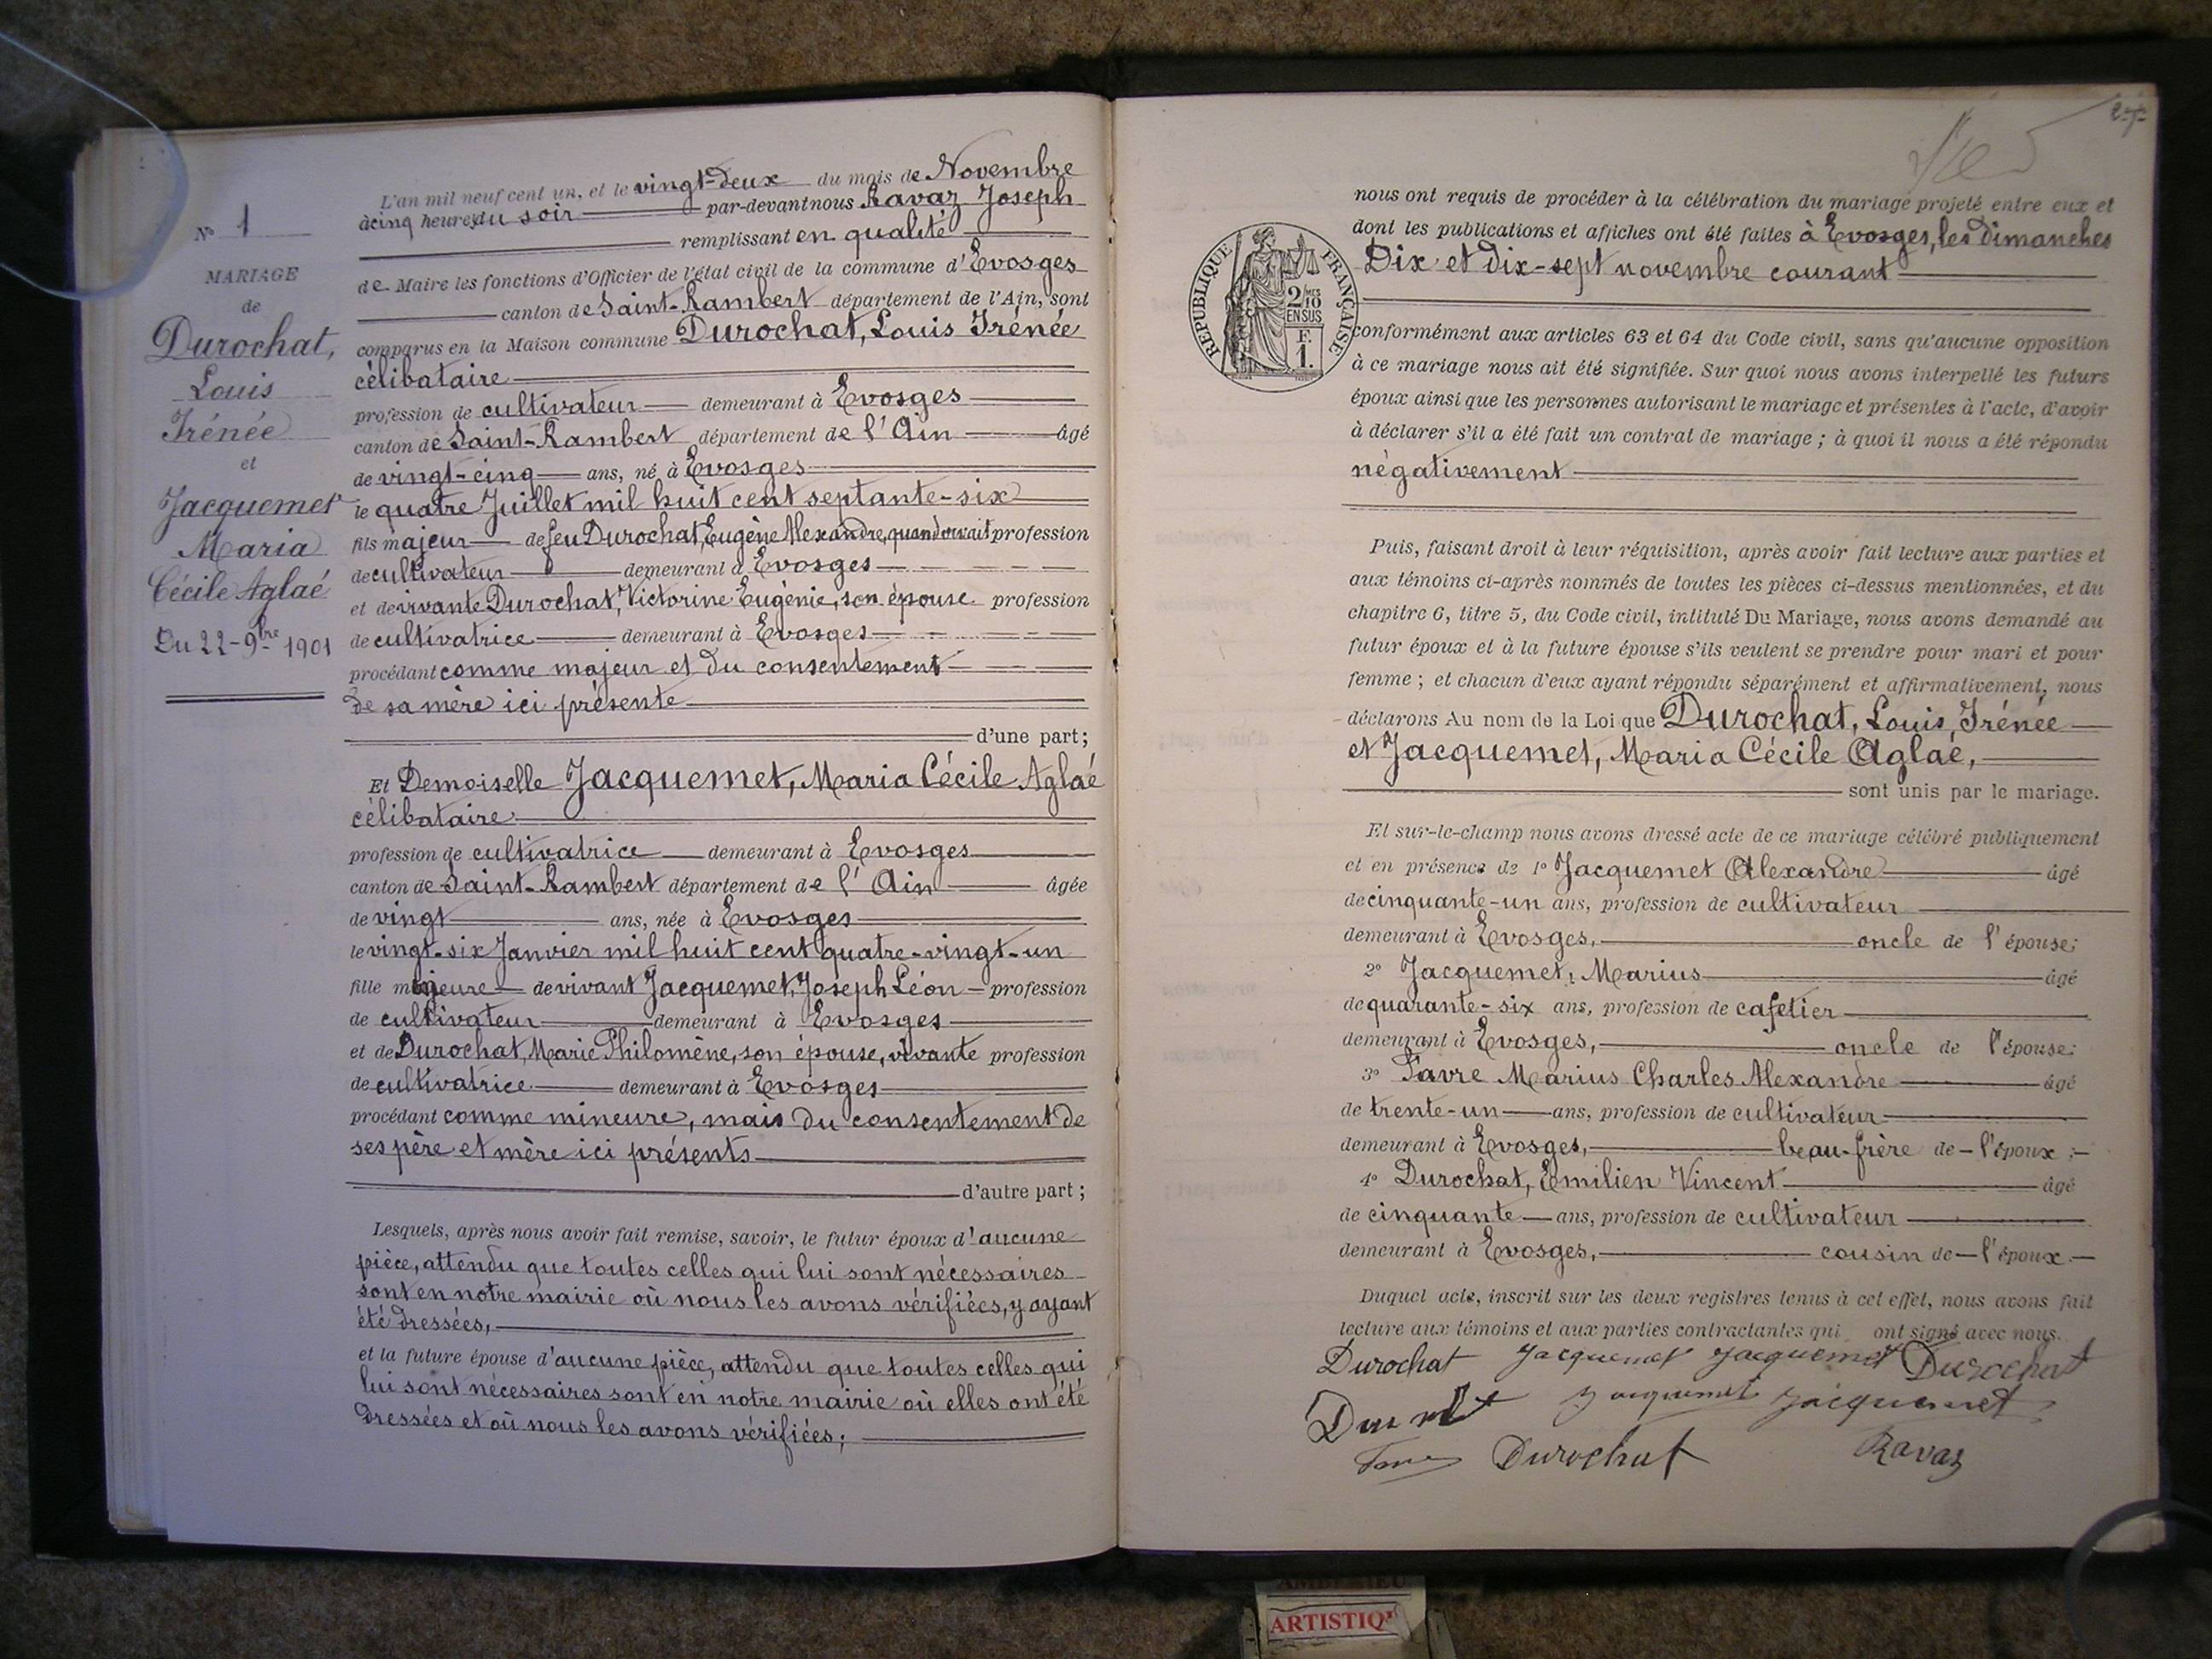 N° 1
MARIAGE
de
Durochat,
Louis
Irénée
et
Jacquemet
Maria
Cécile Aglaé
Du 22-9bre 1901
L'an mil neuf cent un, et le vingt-deux du mois de Novembre
à cinq heures du soir par-devant nous Ravaz Joseph
remplissant en qualité
de Maire les fonctions d'Officier de l'état civil de la commune d'Evosges
canton de Saint-Rambert département de l'Ain, sont
comparus en la Maison commune Durochat, Louis Irénée
célibataire
profession de cultivateur demeurant à Evosges
canton de Saint-Rambert département de l'Ain âgé
de vingt-cinq ans, né à Evosges
le quatre Juillet mil huit cent septante-six
fils majeur de feu Durochat, Eugène Alexandre, quand vivait profession
de cultivateur demeurant à Evosges
et de vivante Durochat, Victorine Eugénie, son épouse profession
de cultivatrice demeurant à Evosges
procédant comme majeur et du consentement
de sa mère ici présente
d'une part;
Et Demoiselle Jacquemet, Maria Cécile Aglaé
célibataire
profession de cultivatrice demeurant à Evosges
canton de Saint-Rambert département de l'Ain âgée
de vingt ans, née à Evosges
le vingt-six Janvier mil huit cent quatre-vingt-un
fille mineure de vivant Jacquemet, Joseph Léon profession
de cultivateur demeurant à Evosges
et de Durochat, Marie Philomène, son épouse, vivante profession
de cultivatrice demeurant à Evosges
procédant comme mineure, mais du consentement de
ses père et mère ici présents
d'autre part;
Lesquels, après nous avoir fait remise, savoir, le futur époux d'aucune
pièce, attendu que toutes celles qui lui sont nécessaires
sont en notre mairie où nous les avons vérifiées, y ayant
été dressées,
et la future épouse d'aucune pièce, attendu que toutes celles qui
lui sont nécessaires sont en notre mairie où elles ont été
dressées et où nous les avons vérifiées;
nous ont requis de procéder à la célébration du mariage projeté entre eux et
dont les publications et affiches ont été faites à Evosges, les dimanches
Dix et dix-sept novembre courant
REPUBLIQUE FRANÇAISE
2/10 MES
EN SUS
F.
1.
conformément aux articles 63 et 64 du Code civil, sans qu'aucune opposition
à ce mariage nous ait été signifiée. Sur quoi nous avons interpellé les futurs
époux ainsi que les personnes autorisant le mariage et présentes à l'acte, d'avoir
à déclarer s'il a été fait un contrat de mariage; à quoi il nous a été répondu
négativement
Puis, faisant droit à leur réquisition, après avoir fait lecture aux parties et
aux témoins ci-après nommés de toutes les pièces ci-dessus mentionnées, et du
chapitre 6, titre 5, du Code civil, intitulé Du Mariage, nous avons demandé au
futur époux et à la future épouse s'ils veulent se prendre pour mari et pour
femme; et chacun d'eux ayant répondu séparément et affirmativement, nous
déclarons Au nom de la Loi que Durochat, Louis, Irénée
et Jacquemet, Maria Cécile Aglaé,
sont unis par le mariage.
Et sur-le-champ nous avons dressé acte de ce mariage célébré publiquement
et en présence de 1° Jacquemet Alexandre âgé
de cinquante-un ans, profession de cultivateur
demeurant à Evosges, oncle de l'épouse;
2° Jacquemet, Marius âgé
de quarante-six ans, profession de cafetier
demeurant à Evosges, oncle de l'épouse;
3° Favre Marius Charles Alexandre âgé
de trente-un ans, profession de cultivateur
demeurant à Evosges, beau-frère de l'époux;
4° Durochat, Emilien Vincent âgé
de cinquante ans, profession de cultivateur
demeurant à Evosges, cousin de l'époux.
Duquel acte, inscrit sur les deux registres tenus à cet effet, nous avons fait
lecture aux témoins et aux parties contractantes qui ont signé avec nous.
Durochat Jacquemet Jacquemet Durochat
Jacquemet Jacquemet
Durochat Ravaz
ARTISTIQ